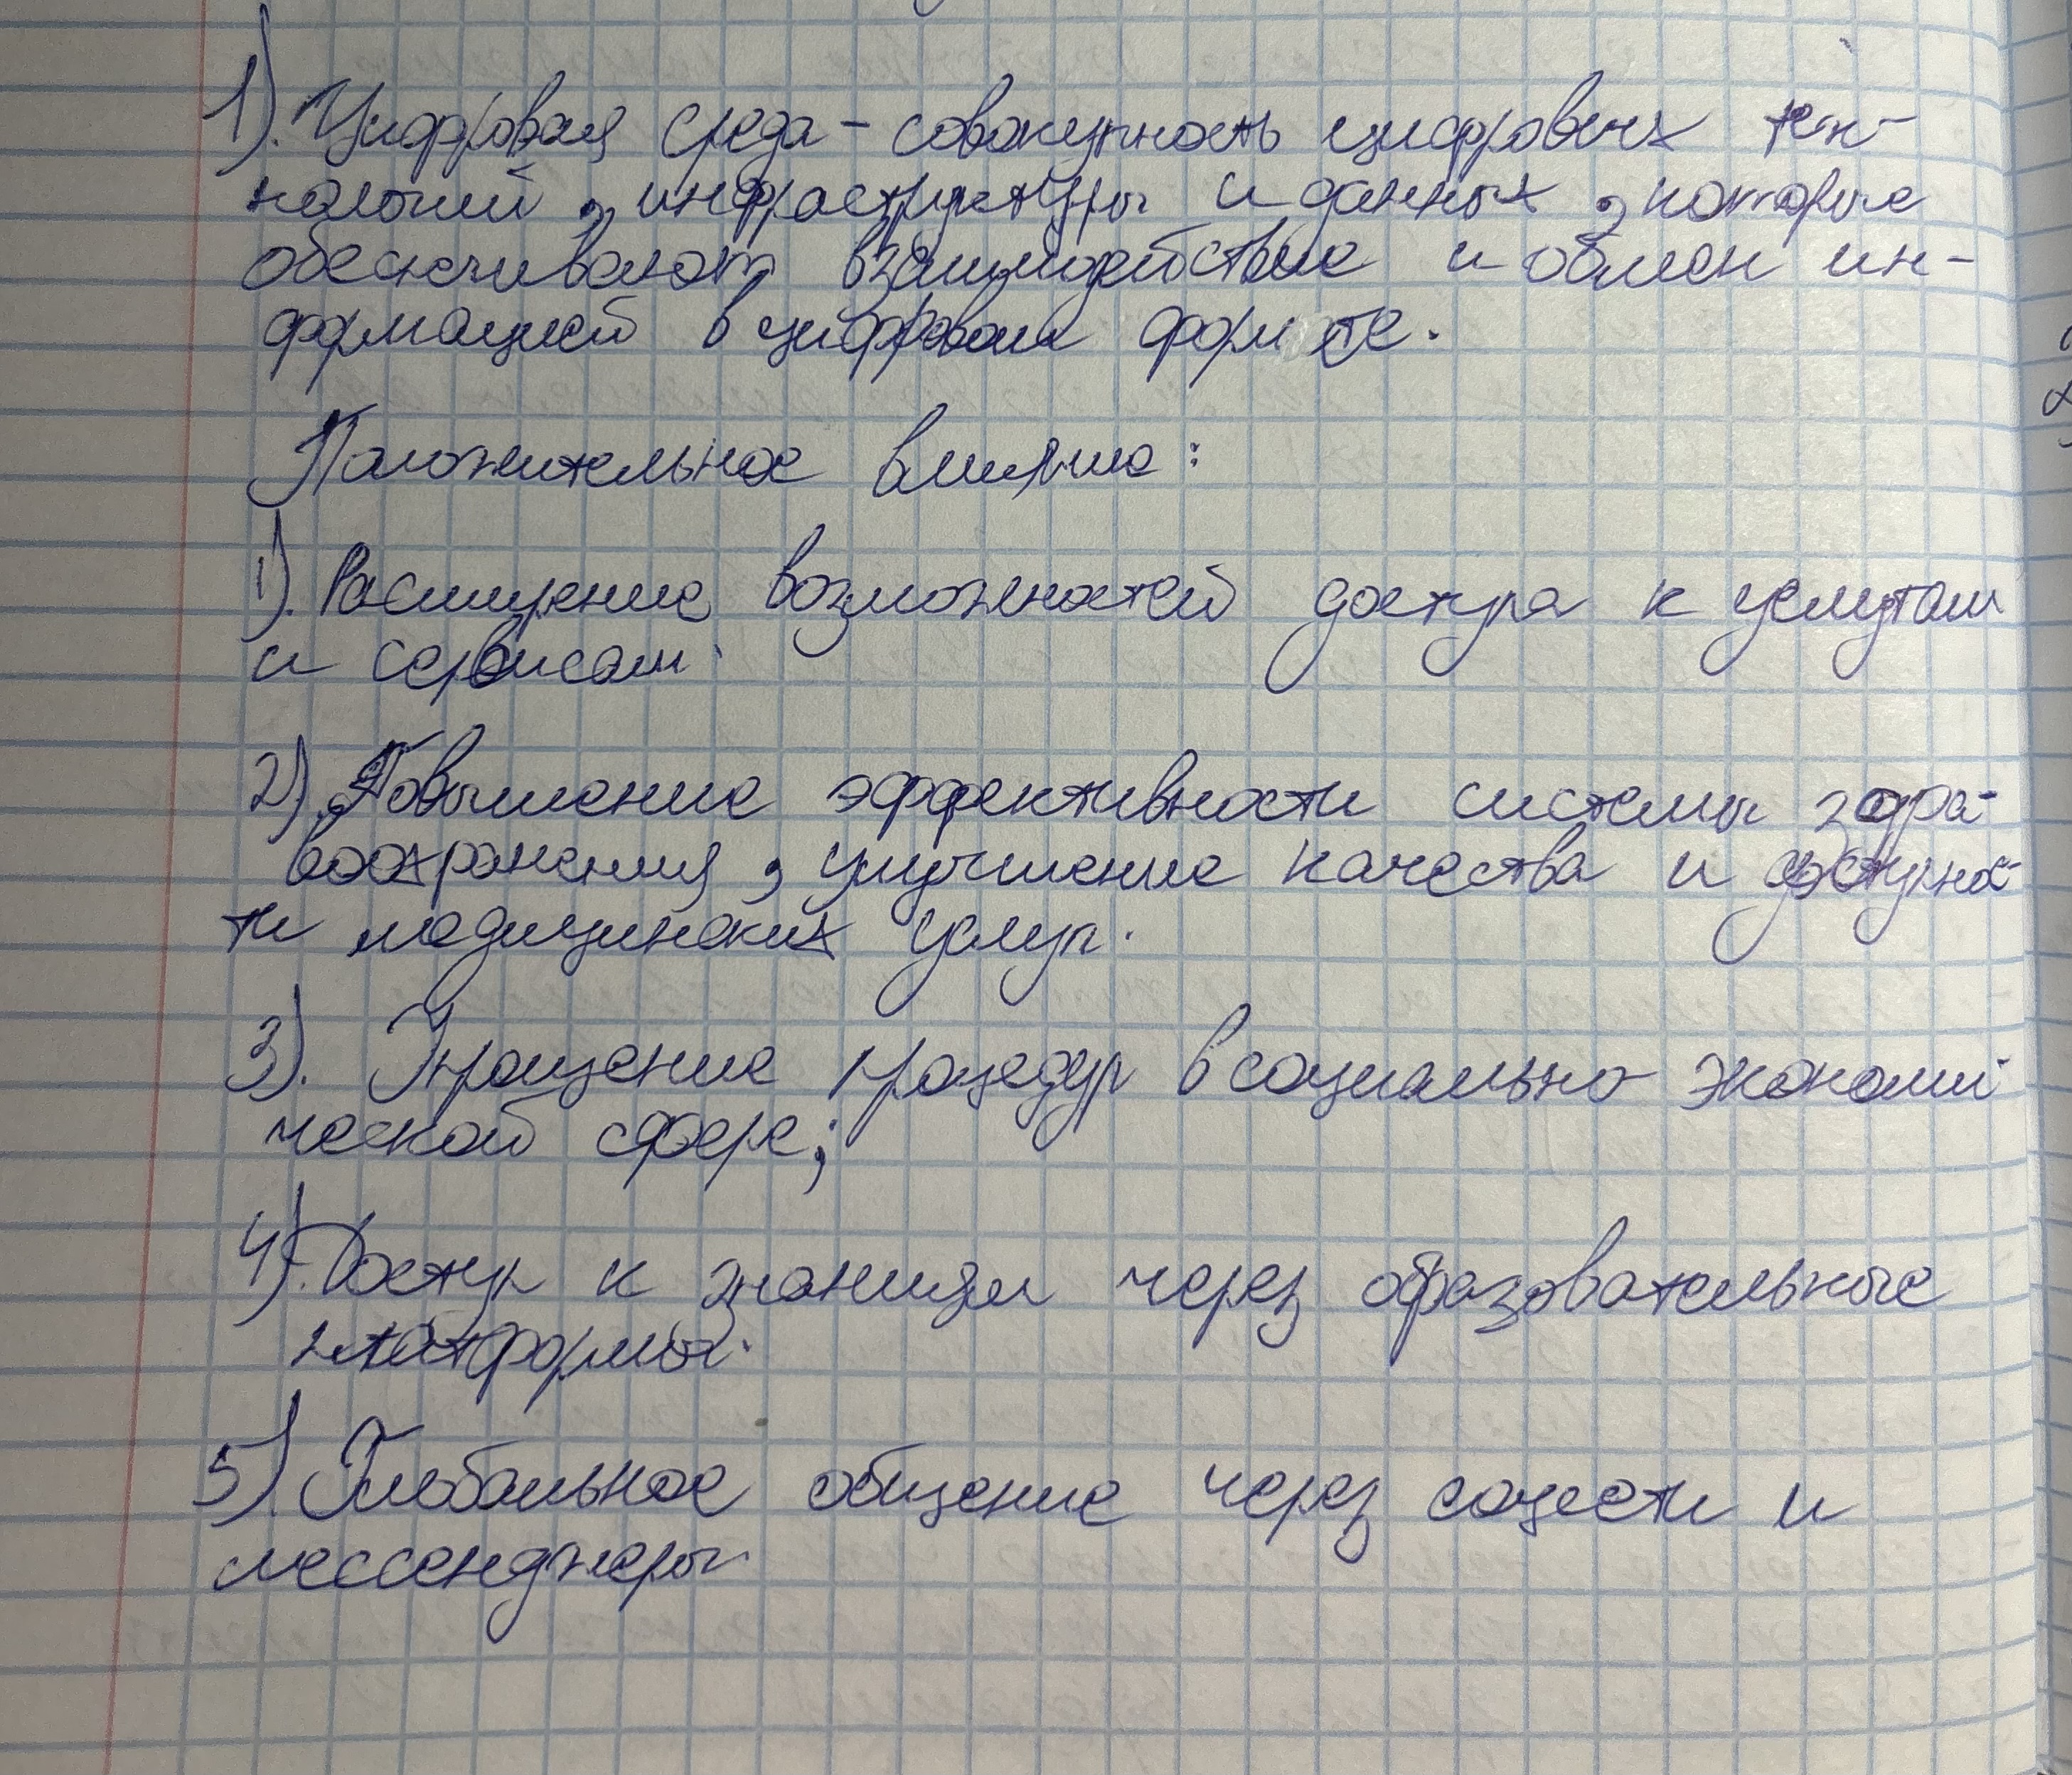 1). Цифровая среда - совокупность цифровых тех-
нологий, инфраструктуры и данных, которые
обеспечивают взаимодействие и обмен ин-
формацией в цифровом формате.
Положительное влияние:
1). Расширение возможностей доступа к услугам
и сервисам.
2). Повышение эффективности системы здра-
воохранения, улучшение качества и доступнос-
ти медицинских услуг.
3). Упрощение процедур в социально экономи-
ческой сфере;
4). Доступ к знаниям через образовательные
платформы.
5). Глобальное общение через соцсети и
мессенджеры